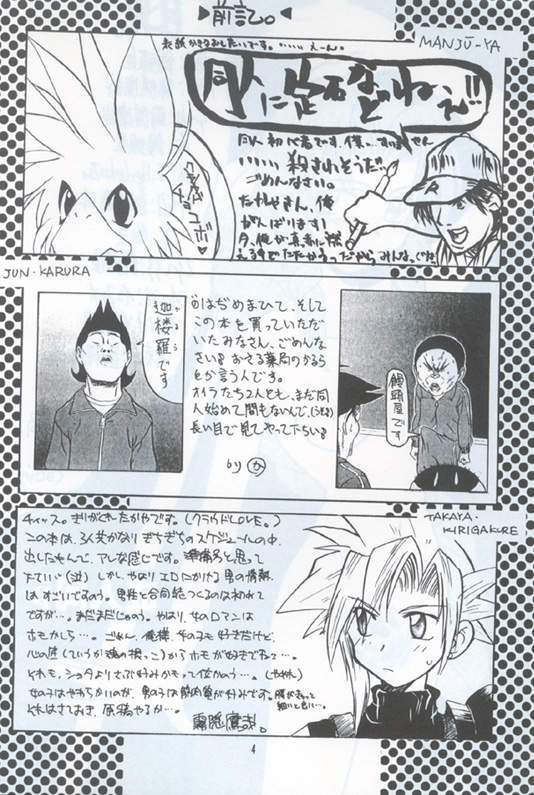 前記。
MANJŪ-YA
表紙かきなおしたいです。……えーん。
同人に定石などねぇ!!
同人初心者です、僕…すいません
……殺されそうだ…
ごめんなさい。
たかやさん、俺
がんばります!
クラウド
チョコボ♥
JUN・KARURA
迦楼羅です
はぢめまひて、そして
この本を買っていただ
いたみなさん、ごめんな
さい。おさる薬局のかるら
とか言う人です。
オイラたち2人とも、まだ同
人始めて間もないんで、
長い目で見てやって下ちい。
by か
饅頭屋です
TAKAYA・
KIRIGAKURE
チィッス。きりがくれたかやです。(クラウドLOVE。)
この本は、3人共かなりぎちぎちのスケジュールの中、
出したもんで、アレな感じです。準備号と思って
下ていい(泣)しかし、やはりエロにかける男の情熱
はすごいですのう。男性と合同誌つくるのは初めて
ですが…。まだまだじゃのう。やはり、女のロマンは
ホモかしら…。ごめん、俺様、女のコも好きだけど、
心の底(ていうか魂の根っこ)からホモが好きでねェ…。
それも、ショタよりさぶ好みかもって位かのう…。
女の子はやわらかいのが、男の子は筋肉質が好みです。
それはさておき、原稿やるか…。
霧隠鷹哉。
4